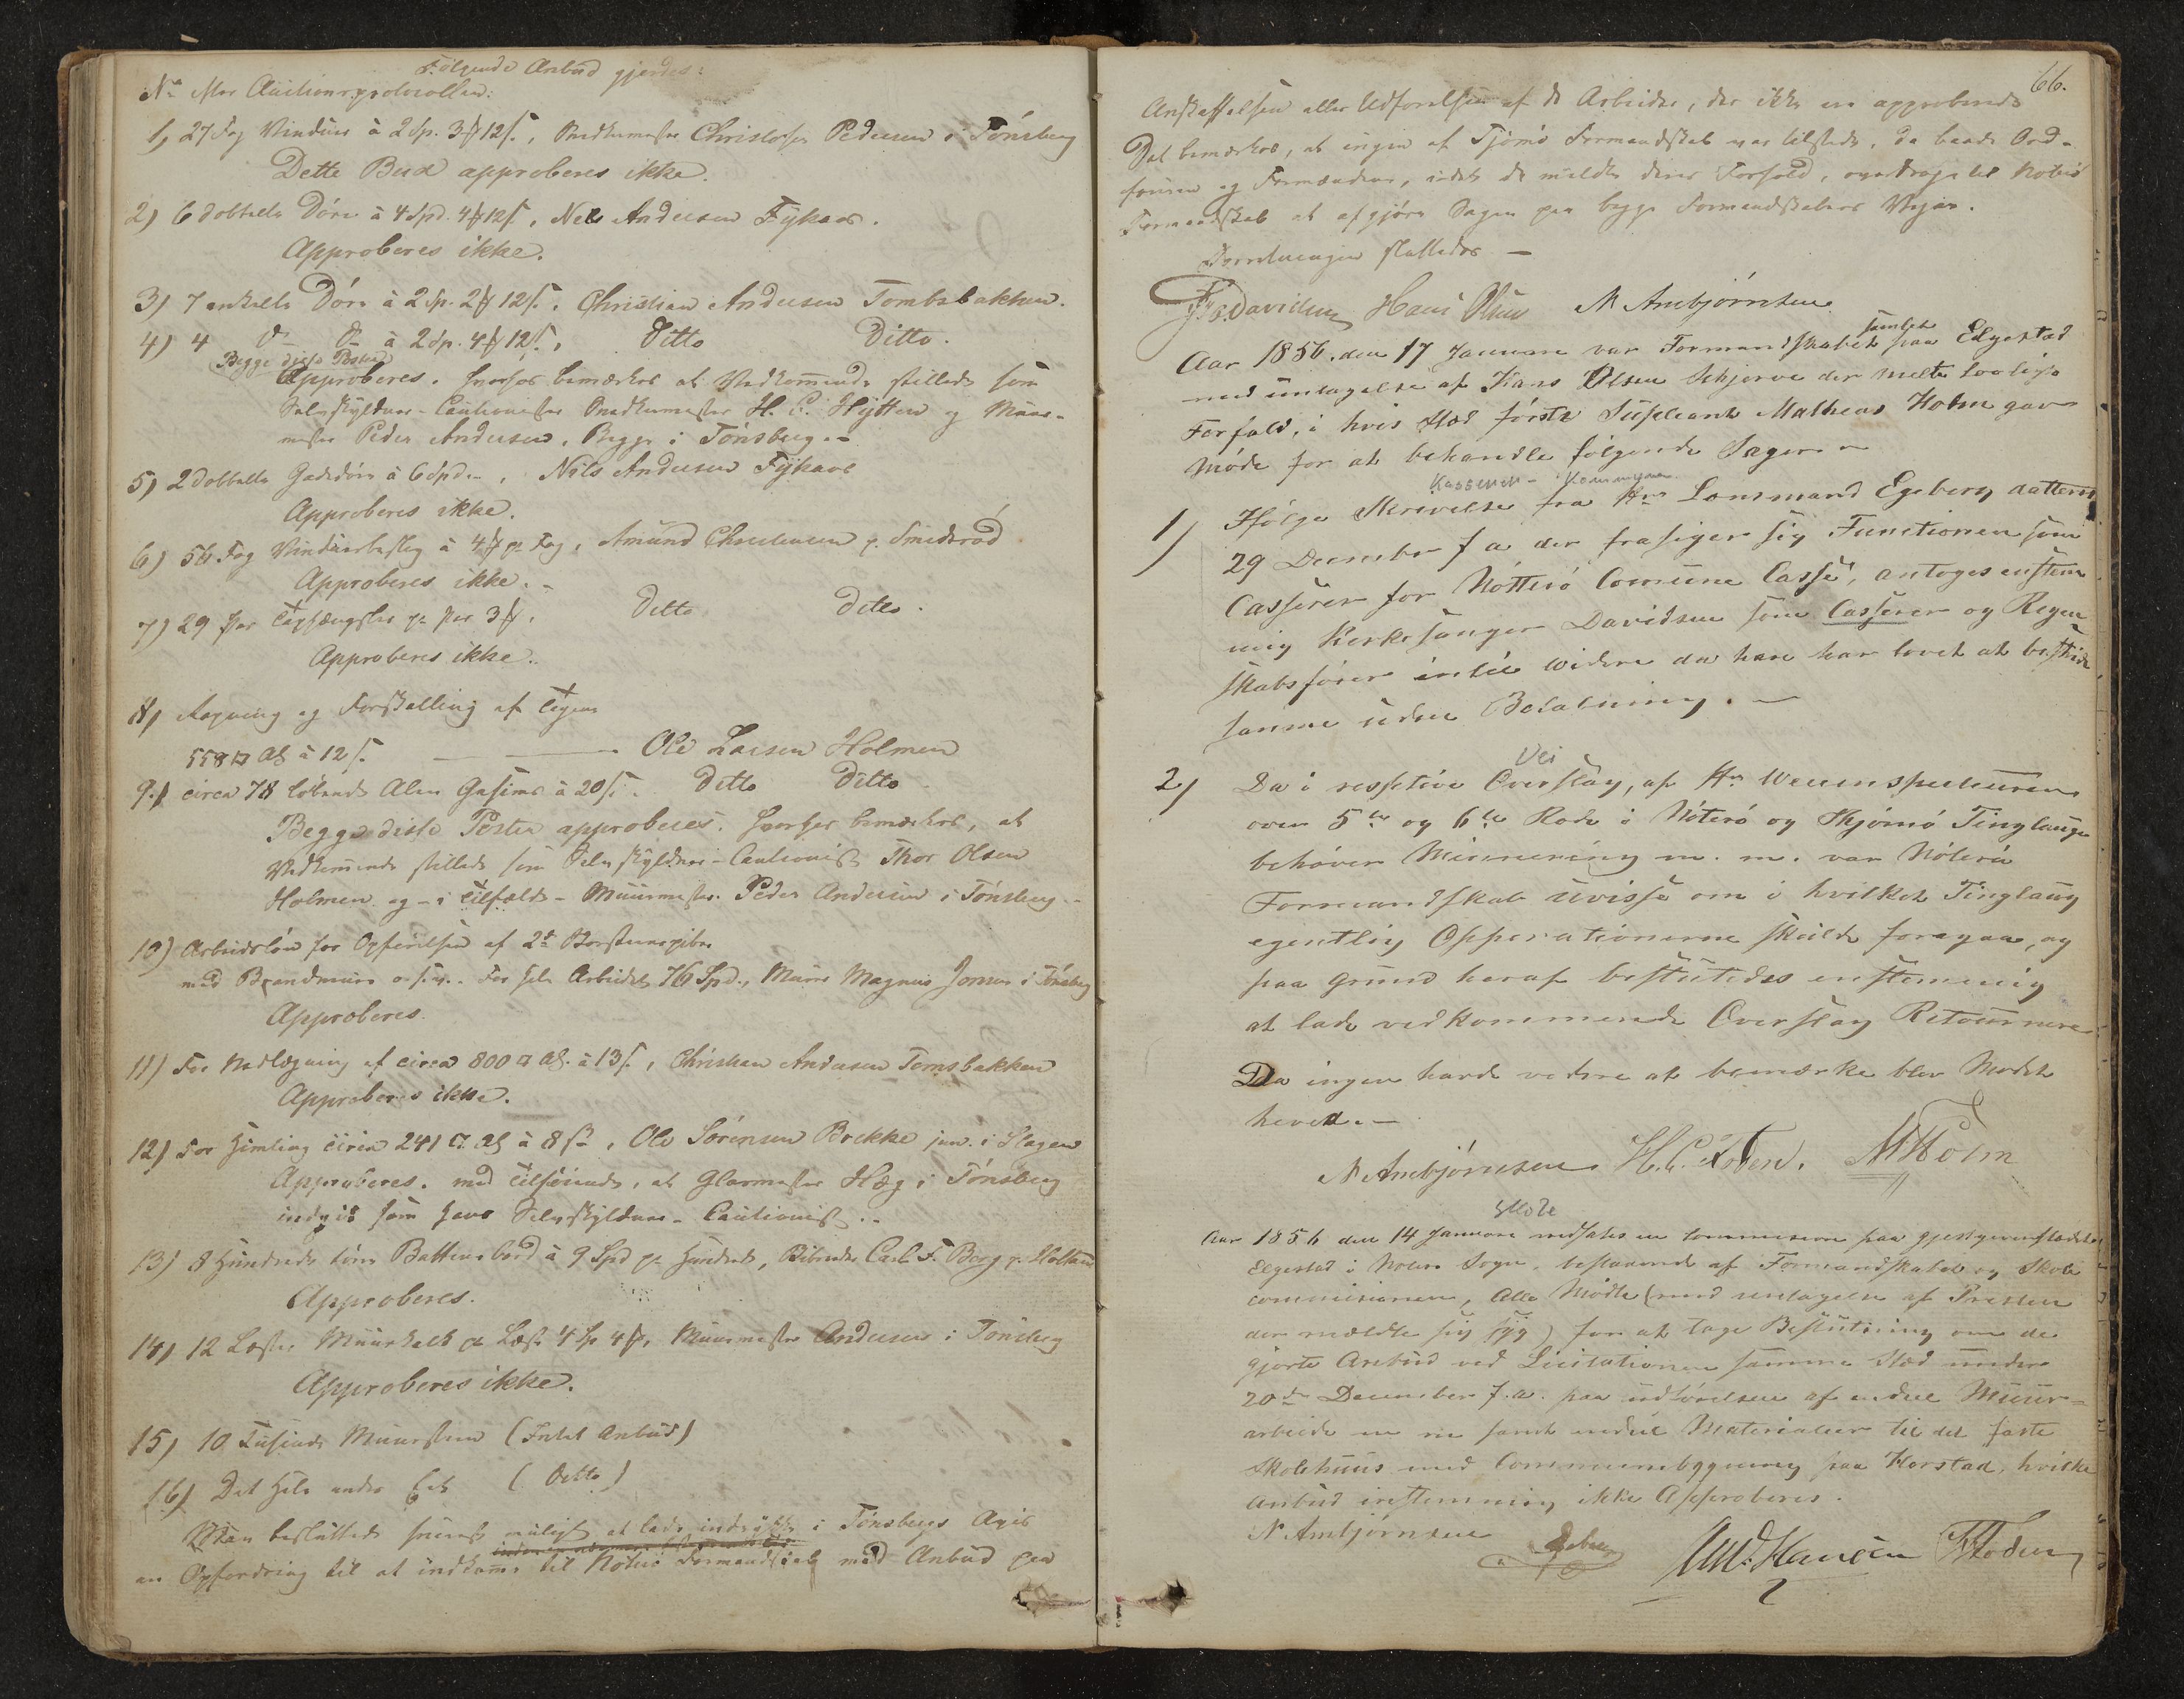 Følgende Anbud gjordes:
No efter Auctionsprotocollen:
1) 27 Fag Vinduer à 2 Sp. 3 ß 12 s., Snedkermester Christopher Pedersen i Tönsberg
Dette Bud approberes ikke.
2) 6 dobbelte Döre à 4 Spd. 4 ß 12 s., Nels Andersen Fÿkaas.
Approberes ikke.
3) 7 enkelte Döre à 2 Sp. 2 ß 12 s., Christian Andersen Tombsbakken.
4) 4 do do à 2 Sp. 4 ß 12 s., Ditto Ditto.
Begge disse Poster
Approberes. Herhos bemærkes at Vedkommende stillede som
Selvskyldner-Cautionister Snedkermester H. C. Hÿtten og Muur-
mester Peder Andersen, Begge i Tönsberg.-
5) 2 dobbelte Gadedöre à 6 Spd.-, Nils Andersen Fÿkaas
Approberes ikke.
6) 56 Fag Vinduesbeslag à 4 ß pr Fag, Amund Christensen p. Smideröd
Approberes ikke.-
7) 29 Par pr Par 3 ß, Ditto Ditto.
Approberes ikke.
8) og Forskalling af
558 □ Al à 12 s. — Ole Larsen Holmen
9) circa 78 löbende Alen Gesims à 20 s. Ditto Ditto
Begge disse Poster approberes. Herhos bemærkes, at
Vedkommende stillede som Selvskyldner-Cautionist Thor Olsen
Holmen og - i Tilfælde - Muurmester Peder Andersen i Tönsberg.-
10) Arbeidslön for Opförelsen af 2de Skorsteenspiber
med Brandmure o.s.v. For hele Arbeidet 76 Spd., Murer Magnus Jonsen i Tönsberg
Approberes.
11) For Nedlægning af circa 800 □ Al. à 13 s., Christian Andersen Tomsbakken
Approberes ikke.
12) For Himling circa 241 □ Al à 8 s, Ole Sörensen Brekke jun. i Slagen
Approberes. med Tilföiende, at Glarmester Høeg i Tönsberg
som Selvskyldner-Cautionist.-
13) 8 Hundrede Battensbord à 9 Spd pr Hundrede, Carl F. Berg p. Holtan
Approberes.
14) 12 Lester Muurkalk pr Læst 4 Sp 4 ß, Muurmester Andersen i Tönsberg
Approberes ikke.
15) 10 Tusinde Muursteen (Intet Anbud)
16) Det Hele under Eet (Ditto)
Man besluttede snarest muligt at lade indrÿkke i Tönsbergs Avis
en Opfordring til at indkomme til Nöterö Formandskab med Anbud paa
66.
Anskaffelsen eller Udförelsen af de Arbeider, der ikke ere approberede
Det bemærkes, at ingen af Tjömö Formandskab var tilstede, da baade Ord-
föreren og Formændene, idet de meldte deres Forfald, overdroge til Nöterö
Formandskab at afgjöre Sagen paa begge Formandskabers Vegne.
Forretningen sluttedes —
Davidsen Hans Olsen N Ambjörnsen
samlet
Aar 1856. den 17 Januar var Formandskabet paa Elgestad
med untagelse af Hans Olsen Schjerve der meldte lovlige
Forfald, i hvis Sted förste Supleant Mathias Holm gav
Möde for at behandle fölgende Sager —
Kasserer - Kommune
1) Ifölge Skrivelse fra Hr Lensmand Egeberg datteret
29 December f a der frasiger sig Functionen som
Casserer for Nötterö Comune Casse, antoges enstem
mig Kirkesanger Davidsen som Casserer og Regen
skabsförer intil widere da han har lovet at bestride
samme uden Betalning. —
Vei
2) Da i Overslag, af Hr
over 5te og 6te Rode i Nöterö og Thjömö Tinglauge
behöver Minnering m. m. var Nöterö
Formandskab uvisse om i hvilket Tinglaug
egentlig Opperationerne skulde foregaa, og
paa Grund heraf besluttedes enstemmig
at lade vedkommende Overslag Retournere
Da ingen havde vedere at bemærke blev Modet
hevet.—
N Ambjörnsen. H. C. Foden. M Holm
Skole
Aar 1856 den 14 Januar nedsates en Commision paa gjestgiverstædet
Elgestad i Nöterö Sogn, bestaaende af Formandskabet og Skole
commisionen, Alle Mödte (med untagelse af Presten
der meldte sig syg) for at tage Beslutning om de
gjorte Anbud ved Licitationen samme Stæd under
20de December f.a. paa udförelsen af endeel Muur-
arbeide m m samt endeel Materialier til det faste
Skolehuus med Communebygning paa Korstad, hvilke
Anbud instemmig ikke Approberes.
N Ambjörnsen Hansen Foden